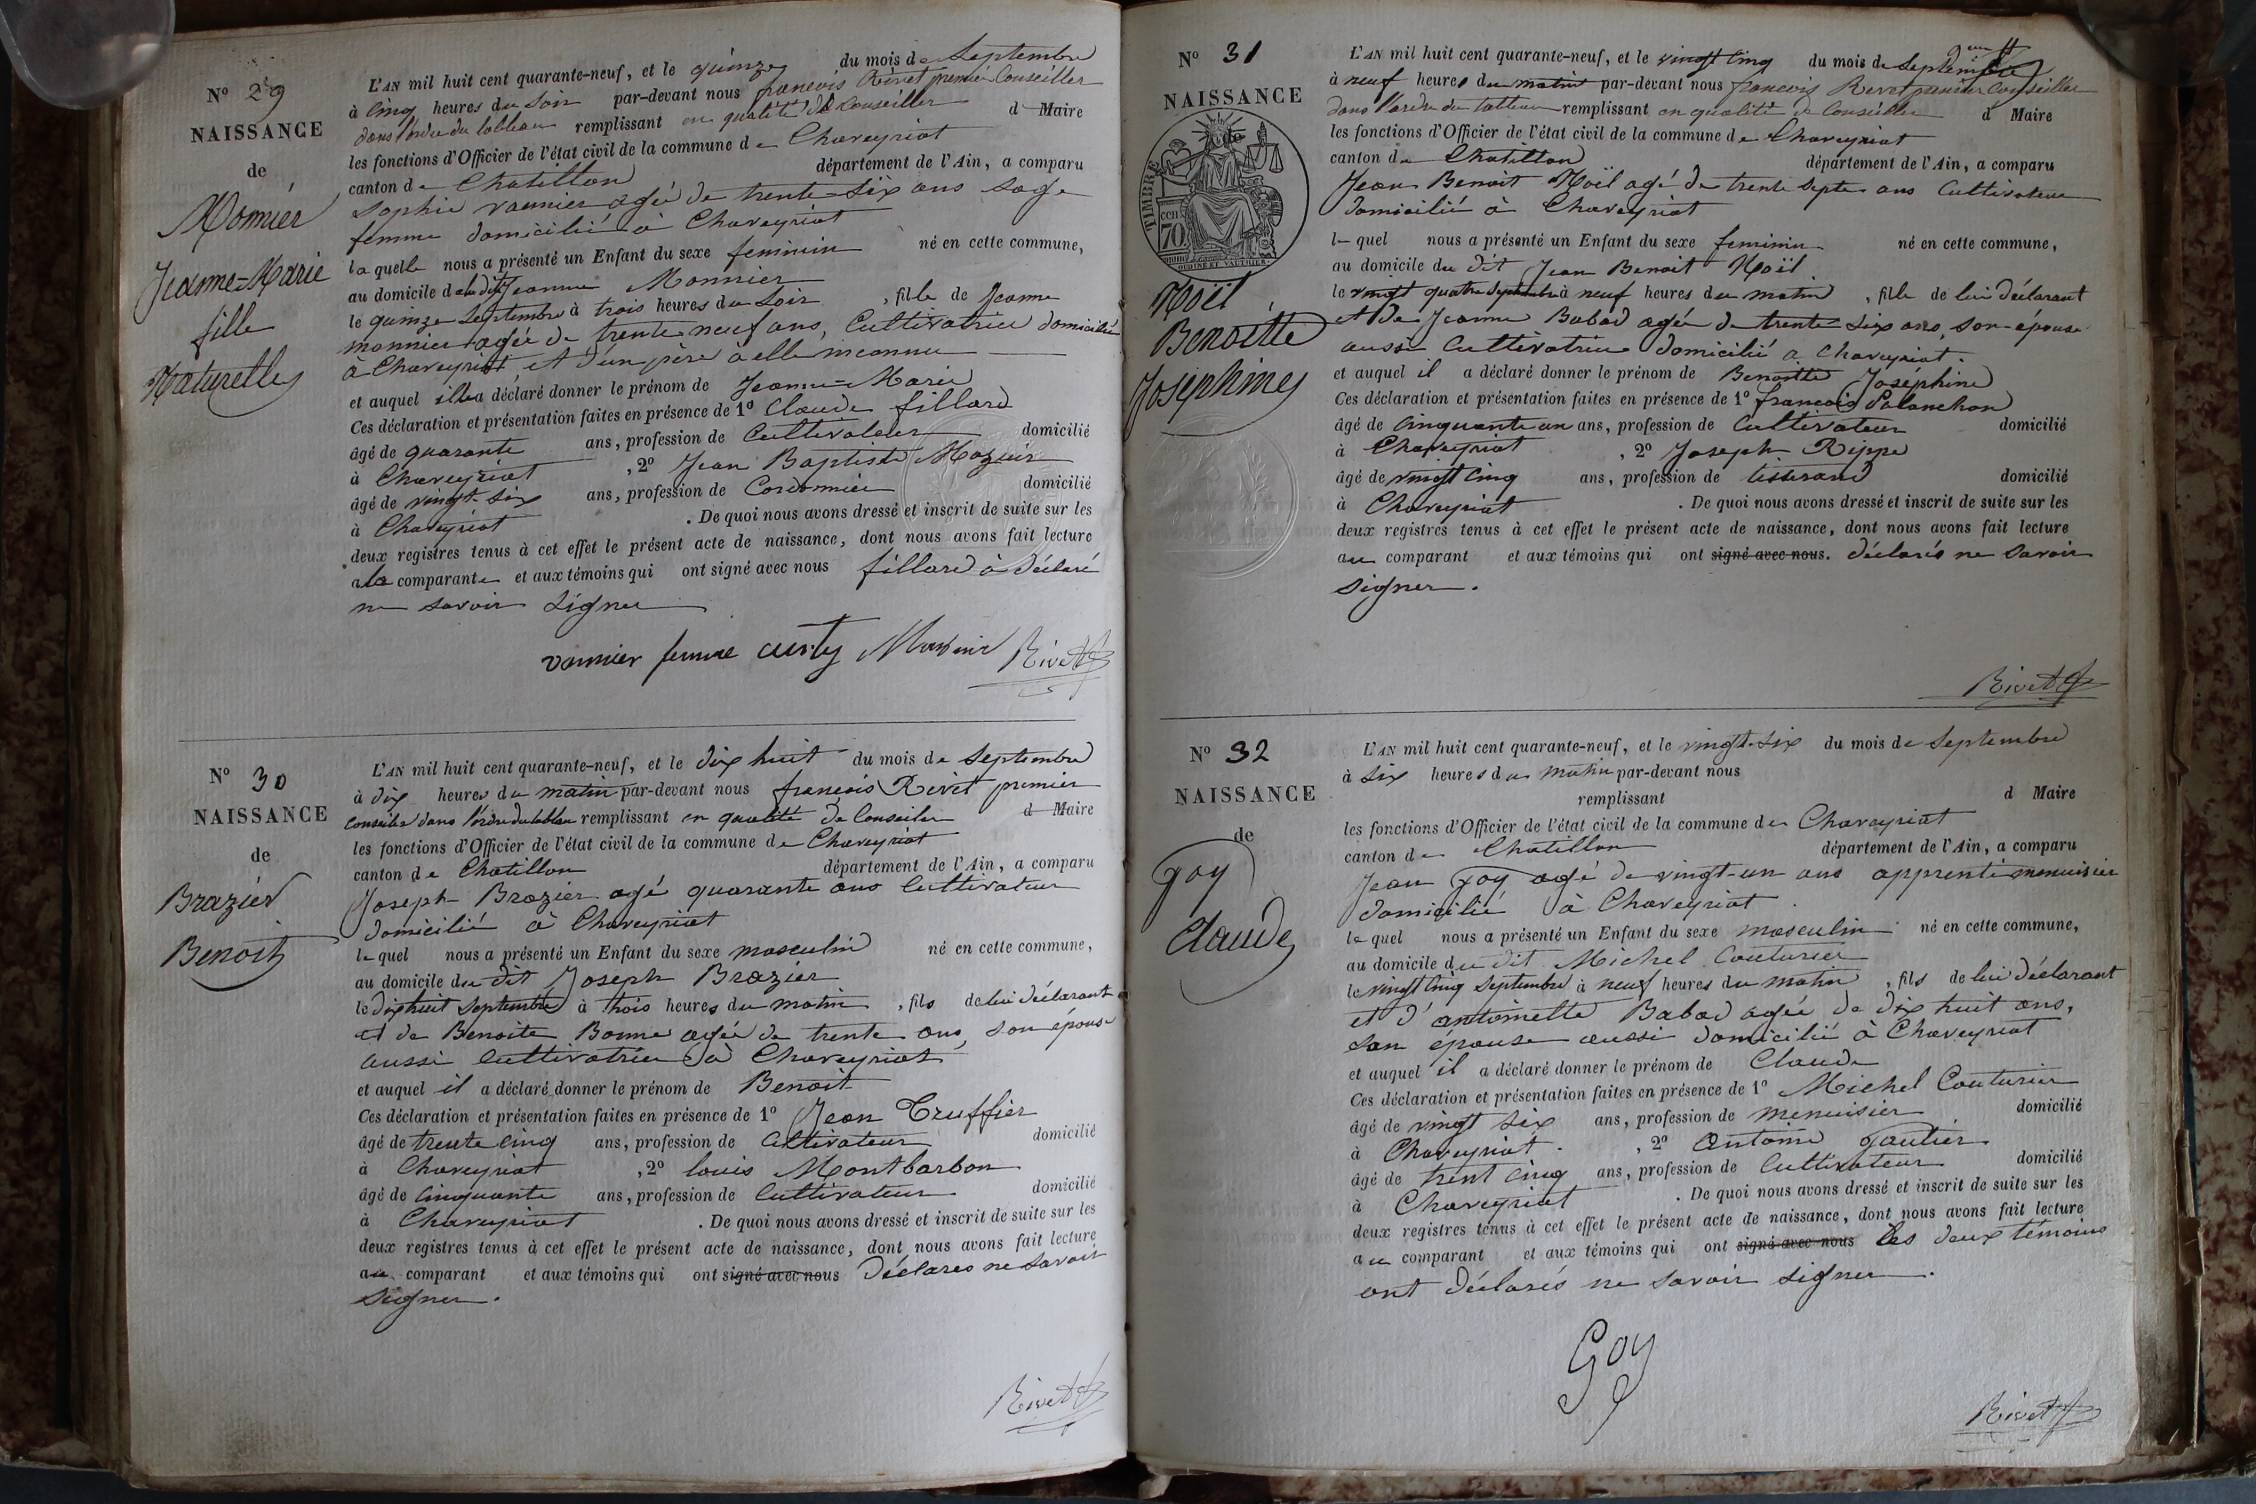 N° 29
NAISSANCE
de
Monnier
Jeanne=Marie
fille
Naturelle
L'AN mil huit cent quarante-neuf, et le quinze du mois de Septembre
à cinq heures du soir par-devant nous francois Rivet premier Conseiller
dans l'ordre du tableau remplissant en qualité de Conseiller d Maire
les fonctions d'Officier de l'état civil de la commune de Chaveyriat
canton de Chatillon département de l'Ain, a comparu
Sophie vannier agé de trente-six ans sage
femme domicilié à Chaveyriat
laquelle nous a présenté un Enfant du sexe feminin né en cette commune,
au domicile de la dite Jeanne Monnier
le quinze Septembre à trois heures du soir, fille de Jeanne
monnier agée de trente neuf ans, Cultivatrice domicilié
à Chaveyriat et d'un père à elle inconnu
et auquel elle a déclaré donner le prénom de Jeanne=Marie
Ces déclaration et présentation faites en présence de 1° Claude fillard
âgé de quarante ans, profession de Cultivateur domicilié
à Chaveyriat, 2° Jean Baptiste Mazuir
âgé de vingt-six ans, profession de Cordonnier domicilié
à Chaveyriat. De quoi nous avons dressé et inscrit de suite sur les
deux registres tenus à cet effet le présent acte de naissance, dont nous avons fait lecture
a la comparante et aux témoins qui ont signé avec nous fillard à déclaré
ne savoir signer
vannier femme Mazuir Rivet
N° 30
NAISSANCE
de
Brazier
Benoit
L'AN mil huit cent quarante-neuf, et le dix huit du mois de Septembre
à dix heures du matin par-devant nous francois Rivet premier
Conseiler dans l'ordre du tableau remplissant en qualité de Conseiler d Maire
les fonctions d'Officier de l'état civil de la commune de Chaveyriat
canton de Chatillon département de l'Ain, a comparu
Joseph Brazier agé quarante ans Cultivateur
domicilié à Chaveyriat
lequel nous a présenté un Enfant du sexe masculin né en cette commune,
au domicile du dit Joseph Brazier
le dix huit Septembre à trois heures du matin, fils de lui déclarant
et de Benoite Bonne agée de trente ans, son épouse
aussi Cultivatrice à Chaveyriat
et auquel il a déclaré donner le prénom de Benoit
Ces déclaration et présentation faites en présence de 1° Jean Truffier
âgé de trente cinq ans, profession de Cultivateur domicilié
à Chaveyriat, 2° louis Montbarbon
âgé de cinquante ans, profession de Cultivateur domicilié
à Chaveyriat. De quoi nous avons dressé et inscrit de suite sur les
deux registres tenus à cet effet le présent acte de naissance, dont nous avons fait lecture
au comparant et aux témoins qui ont signé avec nous déclarés ne savoir
signer.
Rivet
N° 31
NAISSANCE
TIMBRE
cen
70
Noël
Benoitte
Joséphine
L'AN mil huit cent quarante-neuf, et le vingt cinq du mois de Septembre
à neuf heures du matin par-devant nous francois Rivet premier Conseiller
dans l'ordre du tableau remplissant en qualité de Conseiller d Maire
les fonctions d'Officier de l'état civil de la commune de Chaveyriat
canton de Chatillon département de l'Ain, a comparu
Jean Benoit Noël agé de trente septe ans Cultivateur
domicilié à Chaveyriat
lequel nous a présenté un Enfant du sexe feminin né en cette commune,
au domicile du dit Jean Benoit Noël
le vingt quatre Septembre à neuf heures du matin, fille de lui déclarant
et de Jeanne Babad agée de trente-six ans, son épouse
aussi Cultivatrice domicilié à Chaveyriat.
et auquel il a déclaré donner le prénom de Benoitte Joséphine
Ces déclaration et présentation faites en présence de 1° francois Palanchon
âgé de cinquante un ans, profession de Cultivateur domicilié
à Chaveyriat, 2° Joseph Rippe
âgé de vingt cinq ans, profession de tisserand domicilié
à Chaveyriat. De quoi nous avons dressé et inscrit de suite sur les
deux registres tenus à cet effet le présent acte de naissance, dont nous avons fait lecture
au comparant et aux témoins qui ont signé avec nous. déclarés ne savoir
signer.
Rivet
N° 32
NAISSANCE
de
Goy
Claude
L'AN mil huit cent quarante-neuf, et le vingt-six du mois de Septembre
à six heures du matin par-devant nous
remplissant d Maire
les fonctions d'Officier de l'état civil de la commune de Chaveyriat
canton de Chatillon département de l'Ain, a comparu
Jean Goy agé de vingt-un ans apprenti menuisier
domicilié à Chaveyriat.
lequel nous a présenté un Enfant du sexe masculin né en cette commune,
au domicile du dit Michel Couturier
le vingt cinq Septembre à neuf heures du matin, fils de lui déclarant
et d'antoinette Babad agée de dix huit ans,
son épouse aussi domicilié à Chaveyriat
et auquel il a déclaré donner le prénom de Claude
Ces déclaration et présentation faites en présence de 1° Michel Couturier
âgé de vingt six ans, profession de menuisier domicilié
à Chaveyriat., 2° Antoine Gautier
âgé de trent cinq ans, profession de Cultivateur domicilié
à Chaveyriat. De quoi nous avons dressé et inscrit de suite sur les
deux registres tenus à cet effet le présent acte de naissance, dont nous avons fait lecture
au comparant et aux témoins qui ont signé avec nous les deux témoins
ont déclarés ne savoir signer.
Goy
Rivet